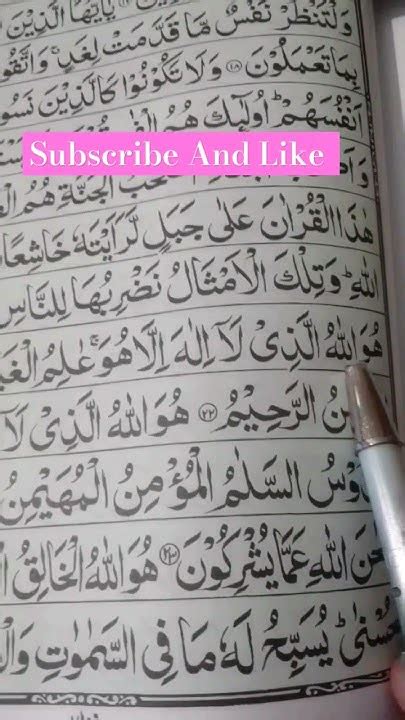 يٰۤاَيُّهَا الَّذِيْنَ
وَلْتَنْظُرْ نَفْسٌ مَّا قَدَّمَتْ لِغَدٍ ۚ وَاتَّقُو
بِمَا تَعْمَلُوْنَ ﴿۱۸﴾ وَلَا تَكُوْنُوْا كَالَّذِيْنَ نَسُو
اَنْفُسَهُمْ ؕ اُولٰٓئِكَ هُمُ
Subscribe And Like
الْجَنَّةِ هُمُ
هٰذَا الْقُرْاٰنَ عَلٰى جَبَلٍ لَّرَاَيْتَهٗ خَاشِعًا
اللّٰهِ ؕ وَتِلْكَ الْاَمْثَالُ نَضْرِبُهَا لِلنَّاسِ
هُوَ اللّٰهُ الَّذِيْ لَاۤ اِلٰهَ اِلَّا هُوَ ۚ عٰلِمُ الْغَيْ
الرَّحِيْمُ ﴿۲۲﴾ هُوَ اللّٰهُ الَّذِيْ لَاۤ
السَّلٰمُ الْمُؤْمِنُ الْمُهَيْمِنُ
اللّٰهِ عَمَّا يُشْرِكُوْنَ ﴿۲۳﴾ هُوَ اللّٰهُ الْخَالِقُ
حُسْنٰى ؕ يُسَبِّحُ لَهٗ مَا فِي السَّمٰوٰتِ